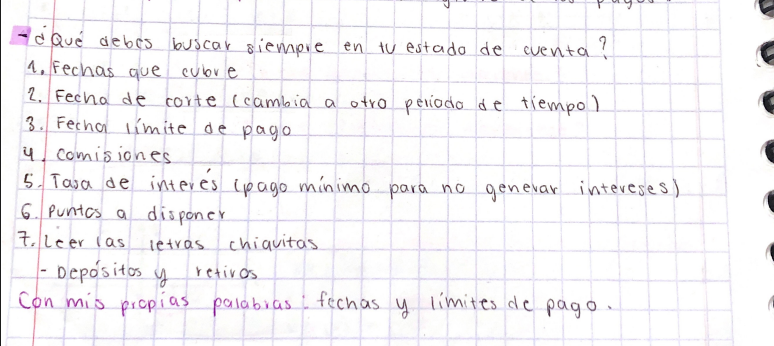 - ¿Qué debes buscar siempre en tu estado de cuenta?
1. Fechas que cubre
2. Fecha de corte (cambia a otro periodo de tiempo)
3. Fecha límite de pago
4. comisiones
5. Tasa de interés (pago mínimo para no generar intereses)
6. Puntos a disponer
7. Leer las letras chiquitas
- Depósitos y retiros
Con mis propias palabras: fechas y límites de pago.